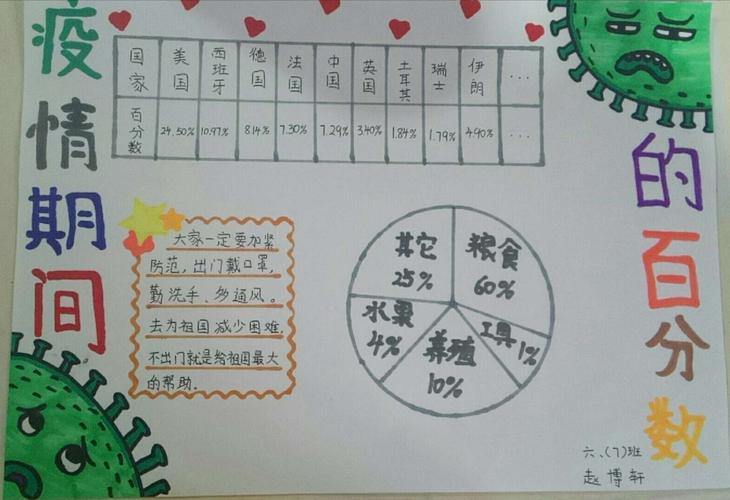 疫情期间
的百分数
国家 美国 西班牙 德国 法国 中国 英国 土耳其 瑞士 伊朗 ...
百分数 24.50% 10.97% 8.14% 7.30% 7.29% 3.40% 1.84% 1.79% 4.90% ...
大家一定要加紧
防范,出门戴口罩,
勤洗手、多通风。
去为祖国减少困难,
不出门就是给祖国最大
的帮助。
其它
25%
粮食
60%
水果
4%
养殖
10%
工具
1%
六、(7)班
赵博轩